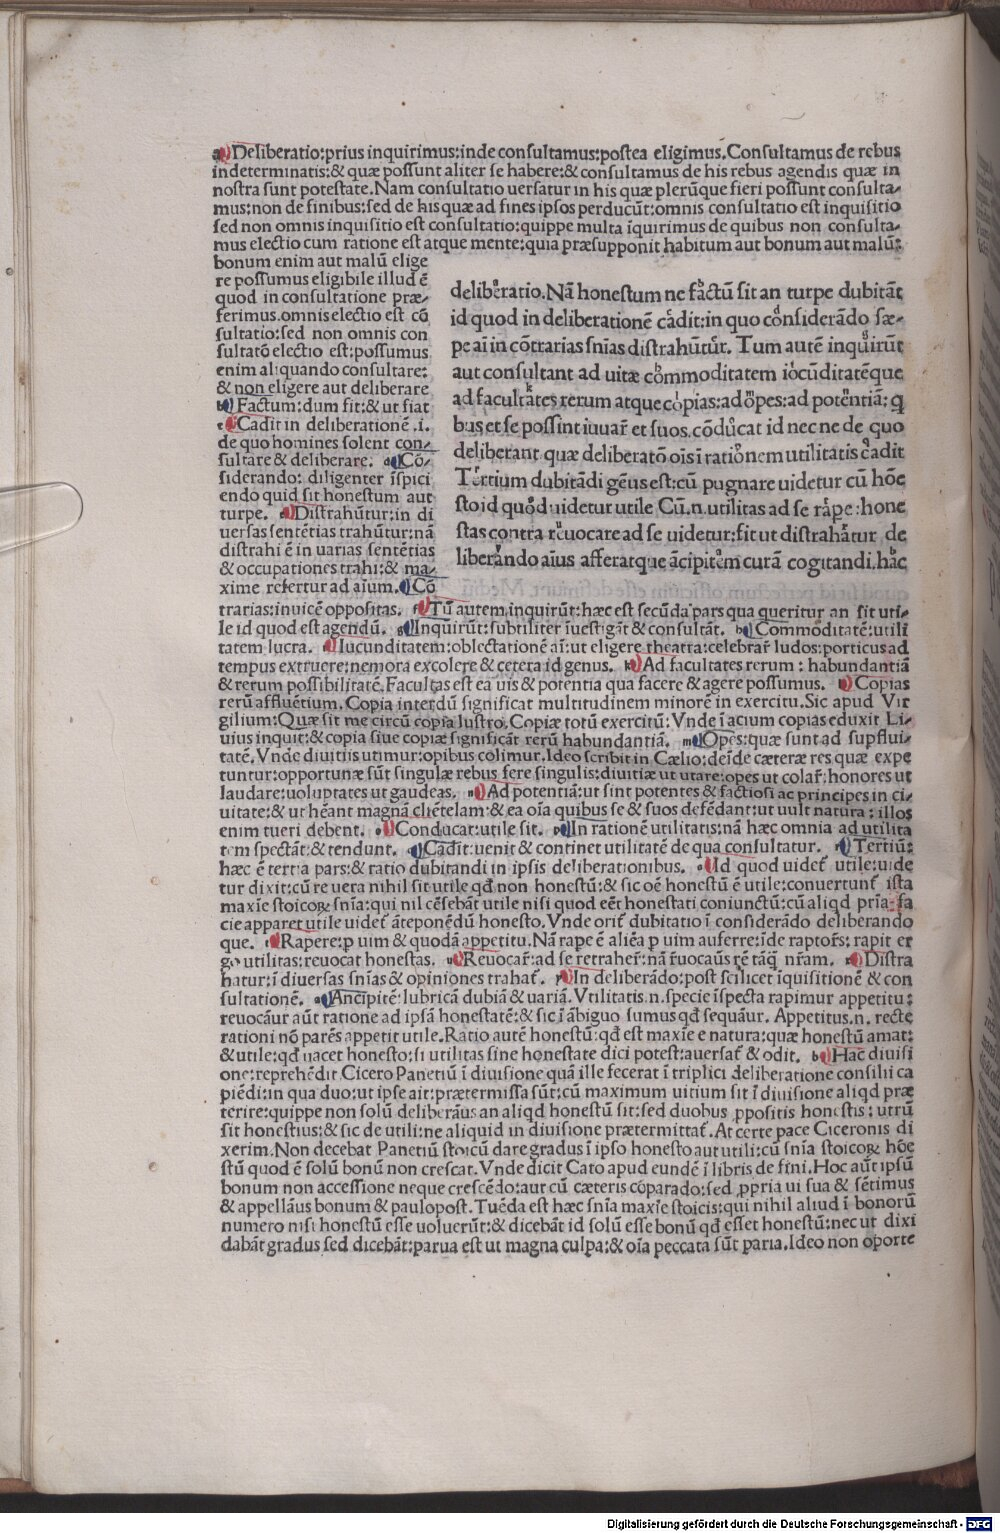 a Deliberatio:prius inquirimus:inde consultamus:postea eligimus.Consultamus de rebus
indeterminatis:& quæ possunt aliter se habere:& consultamus de his rebus agendis quæ in
nostra sunt potestate.Nam consultatio uersatur in his quæ plerūque fieri possunt consulta-
mus:non de finibus:sed de his quæ ad fines ipsos perducūt:omnis consultatio est inquisitio
sed non omnis inquisitio est consultatio:quippe multa īquirimus de quibus non consulta-
mus electio cum ratione est atque mente:quia præsupponit habitum aut bonum aut malū:
bonum enim aut malū elige
re possumus eligibile illud ē
quod in consultatione præ-
ferimus.omnis electio est cō
sultatio:sed non omnis con
sultatō electio est:possumus
enim aliquando consultare:
& non eligere aut deliberare
b Factum:dum fit:& ut fiat
c Cadit in deliberationē .i.
de quo homines solent con-
sultare & deliberare. d Cō-
siderando: diligenter īspici
endo quid sit honestum aut
turpe. e Distrahūtur:in di
uersas sentētias trahūtur:nā
distrahi ē in uarias sentētias
& occupationes trahi:& ma-
xime refertur ad aīum. Cō
deliberatio.Nā honestum ne factū sit an turpe dubitāt
id quod in deliberationē cadit:in quo considerādo sæ-
pe aī in cōtrarias snīas distrahūtur. Tum autē inquirūt
aut consultant ad uitæ commoditatem iocūditatēque
ad facultates rerum atque copias:ad opes:ad potentiā: q
bus et se possint iuuar̄ et suos.cōducat id nec ne de quo
deliberant quæ deliberatō oīs ī rationem utilitatis cadit
Tertium dubitādi gēus est:cū pugnare uidetur cū hōe
sto id quod uidetur utile Cū.n.utilitas ad se rape:hone
stas contra reuocare ad se uidetur:fit ut distrahatur de
liberando aīus afferatque ācipitem curā cogitandi.hāc
trarias:inuicē oppositas. f Tū autem inquirūt:hæc est secūda pars qua queritur an sit uti-
le id quod est agendū. g Inquirūt:subtiliter īuestigāt & consultāt. h Commoditatē:utili
tatem lucra. i Iucunditatem:oblectationē aī:ut eligere theatra:celebrar̄ ludos:porticus ad
tempus extruere:nemora excolere & cetera id genus. k Ad facultates rerum : habundantiā
& rerum possibilitatē.Facultas est ea uis & potentia qua facere & agere possumus. l Copias
rerū affluētium. Copia interdū significat multitudinem minorē in exercitu.Sic apud Vir
gilium:Quæ sit me circū copia lustro.Copiæ totū exercitū: Vnde ī acium copias eduxit Li-
uius inquit:& copia siue copiæ significāt rerū habundantiā. m Opes:quæ sunt ad supflui-
tatē.Vnde diuitiis utimur:opibus colimur.Ideo scribit in Cælio:deīde cæteræ res quæ expe
tuntur:opportunæ sūt singulæ rebus fere singulis:diuitiæ ut utare:opes ut colar̄:honores ut
laudare:uoluptates ut gaudeas. n Ad potentiā:ut sint potentes & factiosi ac principes in ci-
uitate:& ut hēant magnā cliētelam:& ea oīa quibus se & suos defēdant:ut uult natura : illos
enim tueri debent. o Conducat:utile sit. p In rationē utilitatis:nā hæc omnia ad utilita
tem spectāt:& tendunt. q Cadit:uenit & continet utilitatē de qua consultatur. r Tertiū:
hæc ē tertia pars:& ratio dubitandi in ipsis deliberationibus. s Id quod uidet̄ utile:uide
tur dixit:cū re uera nihil sit utile qd̄ non honestū:& sic oē honestū ē utile:conuertunt̄ ista
maxīe stoicoꝝ snīa:qui nil cēsebāt utile nisi quod eēt honestati coniunctū:cū aliqd prīa fa
cie apparet utile uidet̄ āteponēdū honesto.Vnde orit̄ dubitatio ī considerādo deliberando
que. t Rapere:p uim & quodā appetitu.Nā rape ē aliēa p uim auferre:īde raptor̄s: rapit er
go utilitas:reuocat honestas. u Reuocar̄:ad se retraher̄:nā r̄uocaūs rē tāq̄ nr̄am. x Distra
hatur:ī diuersas snīas & opiniones trahat̄. y In deliberādo:post scilicet īquisitionē & con
sultationē. a Ancipitē:lubricā dubiā & uariā.Vtilitatis.n.specie īspecta rapimur appetitu:
reuocāur aūt ratione ad ipsā honestatē:& sic ī ābiguo sumus qd̄ sequāur. Appetitus.n. recte
rationi nō parēs appetit utile.Ratio autē honestū:qd̄ est maxīe e natura:quæ honestū amat:
& utile:qd̄ uacet honesto:si utilitas sine honestate dici potest:auersat̄ & odit. b Hāc diuisi
one:reprehēdit Cicero Panetiū ī diuisione quā ille fecerat ī triplici deliberatione consilii ca
piēdi:in qua duo:ut ipse ait:prætermissa sūt:cū maximum uitium sit ī diuisione aliqd præ
terire:quippe non solū deliberāus an aliqd honestū sit:sed duobus ppositis honestis : utrū
sit honestius:& sic de utili:ne aliquid in diuisione prætermittat̄.At certe pace Ciceronis di
xerim.Non decebat Panetiū stoicū dare gradus ī ipso honesto aut utili:cū snīa stoicoꝝ hōe
stū quod ē solū bonū non crescat.Vnde dicit Cato apud eundē ī libris de fini.Hoc aūt ipsū
bonum non accessione neque crescēdo:aut cū cæteris cōparado:sed ppria ui sua & sētimus
& appellāus bonum & paulopost.Tuēda est hæc snīa maxīe stoicis:qui nihil aliud ī bonorū
numero nisi honestū esse uoluerūt:& dicebāt id solū esse bonū qd̄ esset honestū:nec ut dixi
dabāt gradus sed dicebāt:parua est ut magna culpa:& oīa peccata sūt paria.Ideo non oporte
Digitalisierung gefördert durch die Deutsche Forschungsgemeinschaft - DFG